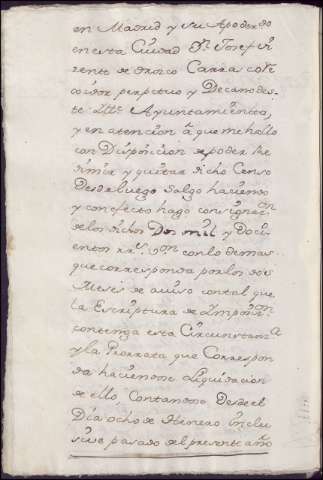 en Madrid y su Apoderado
en esta Ciudad Dn. Josef Vi
rente de Orozco Carra
cidor perpetuo y Decano des
te Ille. Ayuntamiento,
y en atencion â que me hallo
con Disposicion de poder Re
dimir y quitar dicho Censo
Desde luego Salgo haciendo
y con efecto hago consignacon
de los dichos Dos mil y Docie
entos rrs. von. con lo demas
que corresponda por los dos
Meses de aviso con tal que
la Escriptura de Ymposicon
contenga esta Circunstama
y la Prorrata que Correspon
da haciendome Liquidacion
de ello, Contandose desde el
Dia ocho de Henero inclu
sive pasado del presente año